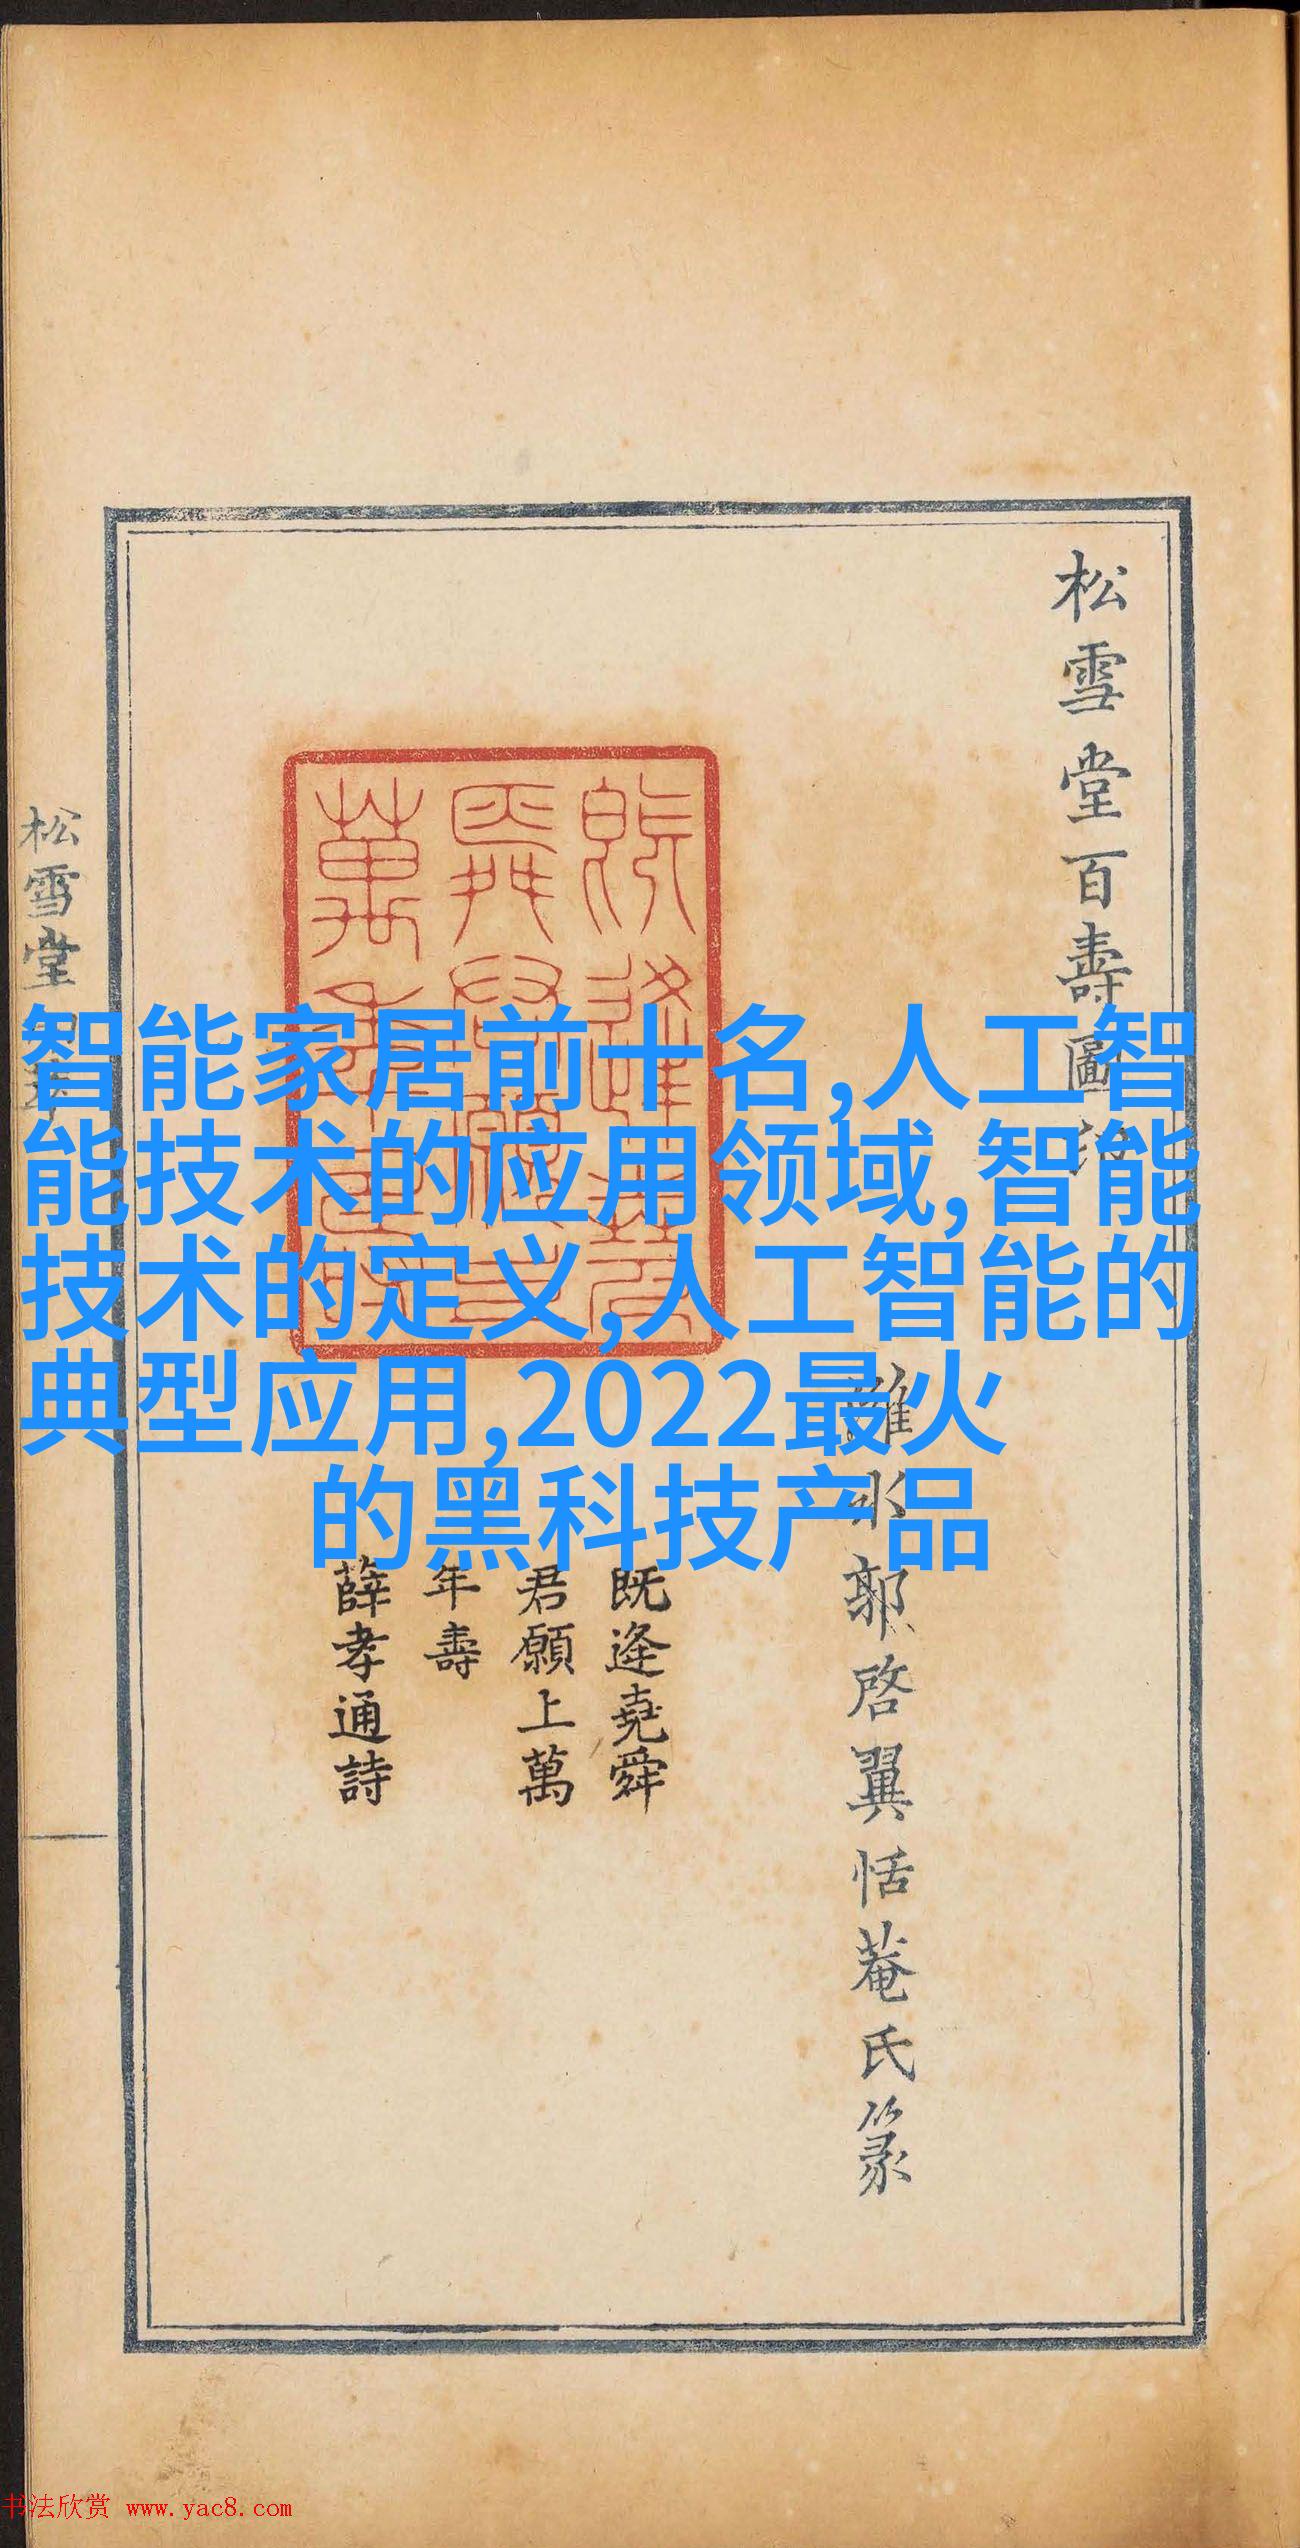 松雪堂百壽圖
水郭啓翼恬菴氏篆
既逢堯舜
君願上萬
年壽
薛孝通詩
松雪堂
智能家居前十名,人工智
能技术的应用领域,智能
技术的定义,人工智能的
典型应用,2022最火
的黑科技产品
书法欣赏 www.yac8.com